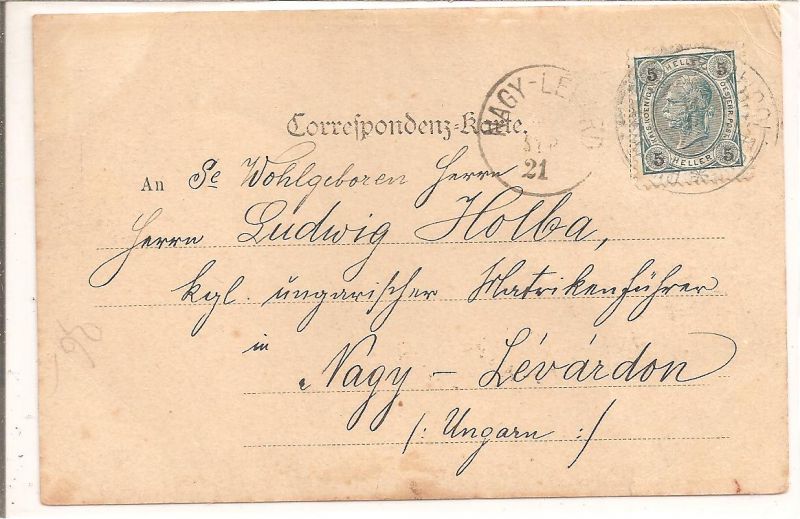 5 HELLER 5
KAIS. KOENIGL. OESTERR. POST.
5 HELLER 5
NAGY-LE
21
Correspondenz-Karte.
An Se Wohlgeboren Herrn
Herrn Ludwig Holba,
kgl. ungarischer Matrikenführer
in
Nagy-Lévárdon
/: Ungarn :/